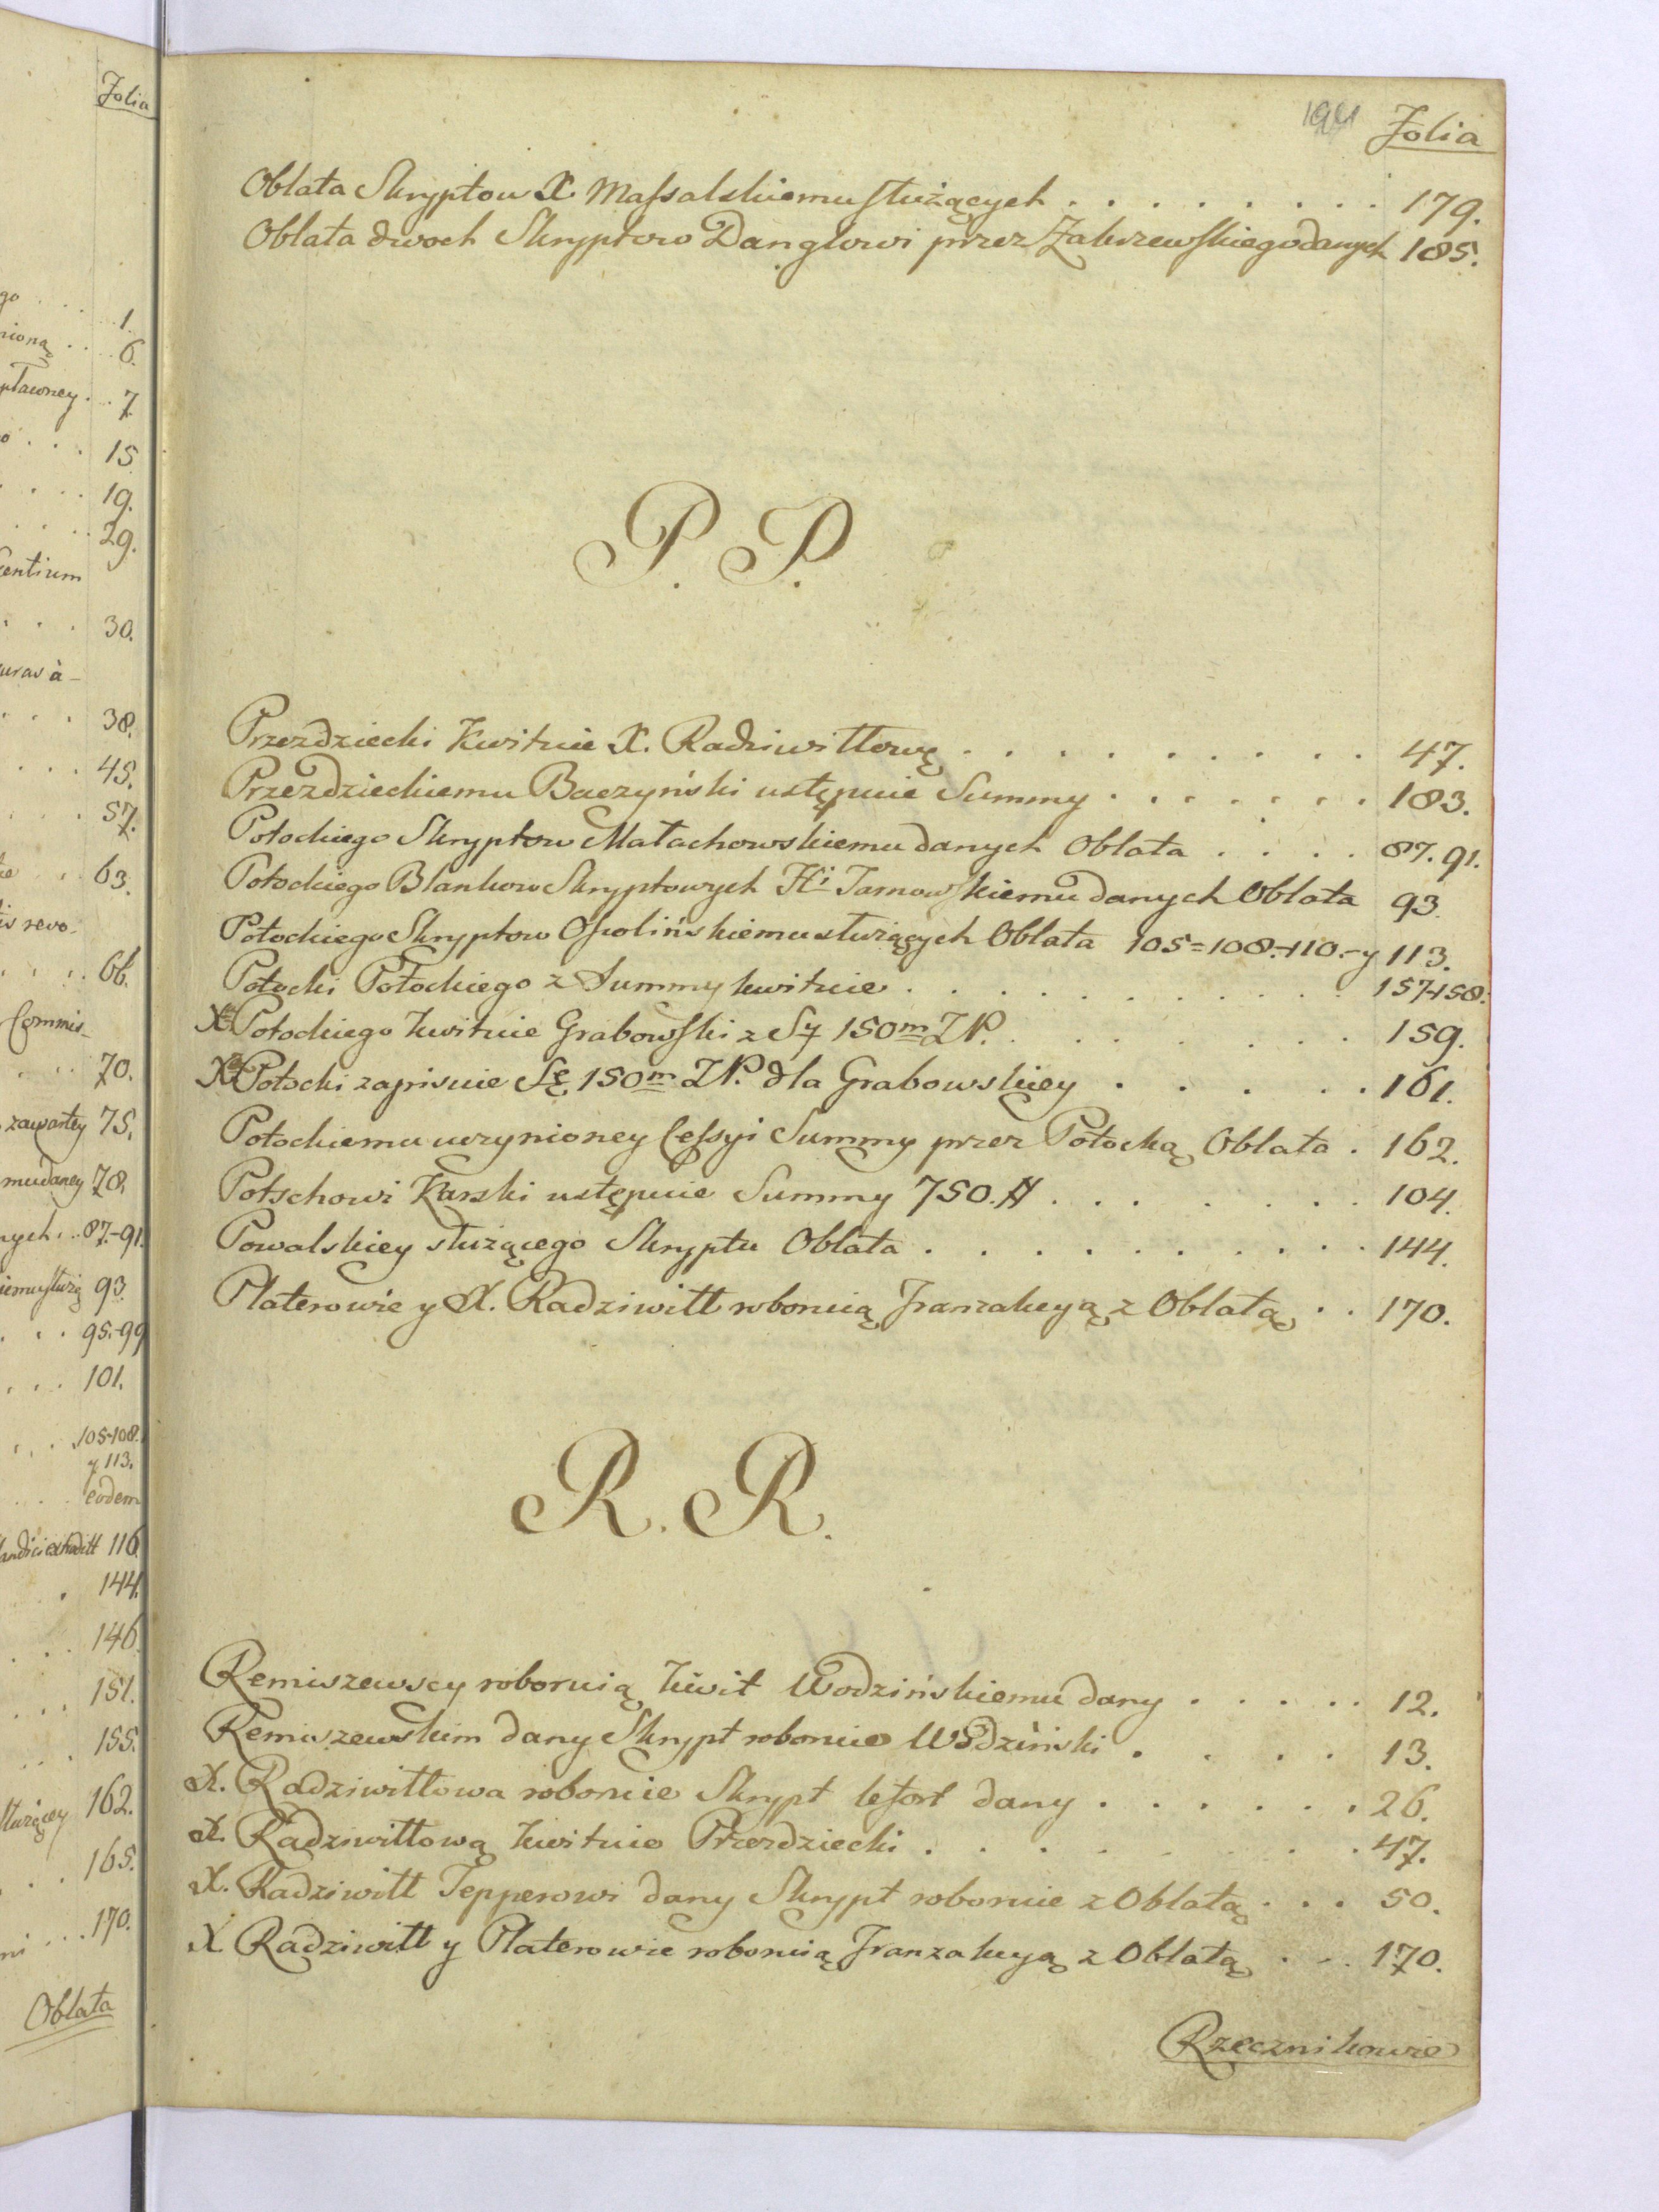 Folia
go . . . 1.
nioną . . . 6.
pławney . . 7
o . . . 15
. . . . 19.
. . . . 29.
centium
. . . 30.
uras à
. . . 38.
. . . 45.
. . . 57.
ie . . 63.
is revo-
. . . 66.
Commis-
. . . 70.
zawartey 75.
mu daney 78.
nych . . 87.-91.
iemu służą 93.
. . . 95.-99
. . . 101.
. . . 105-108.
y 113.
. . . eodem
116
. 144.
. . . 146.
. . . 151.
. . . 155.
służącey 162.
. . . 165.
ni . . . 170.
Oblata
194 Folia
Oblata Skryptow X. Massalskiemu służących . . . . . . . . . 179.
Oblata dwoch Skryptow Danglowi przez Zakrzewskiego danych 185.
P. P.
Przezdziecki kwituie X. Radziwiłłowę . . . . . . . . . 47.
Przezdzieckiemu Baczyński ustępuie Summy . . . . . . 183.
Potockiego Skryptow Małachowskiemu danych Oblata . . . . 87. 91.
Potockiego Blankow Skryptowych Hi Tarnowskiemu danych Oblata 93.
Potockiego Skryptow Ossolińskiemu służących Oblata 105=108.-110.-y 113.
Potocki Potockiego z Summy kwituie . . . . . . . . . . 157-158.
X Potockiego kwituie Grabowski z Sy 150m ZP. . . . . . . . 159.
X Potocki zapisuie Sę 150m ZP. dla Grabowskiey . . . . . 161.
Potockiemu uczynioney Cessyi Summy przez Potocką Oblata . 162.
Potschowi Karski ustępuie Summy 750.# . . . . . . . 104.
Powalskiey służącego Skryptu Oblata . . . . . . . . . 144.
Platerowie y X. Radziwiłł roboruią Tranzakcyą z Oblatą . . 170.
R. R.
Remiszewscy roboruią kwit Wodzińskiemu dany . . . . . 12.
Remiszewskim dany Skrypt roboruie Wodziński . . . . 13.
X. Radziwiłłowa roboruie Skrypt lefort dany . . . . . . 26.
X. Radziwiłłową kwituie Przezdziecki . . . . . . . . 47.
X. Radziwiłł Tepperowi dany Skrypt roboruie z Oblatą . . . 50.
X Radziwiłł y Platerowie roboruią Tranzakcyą z Oblatą . . . 170.
Rzecznikowie